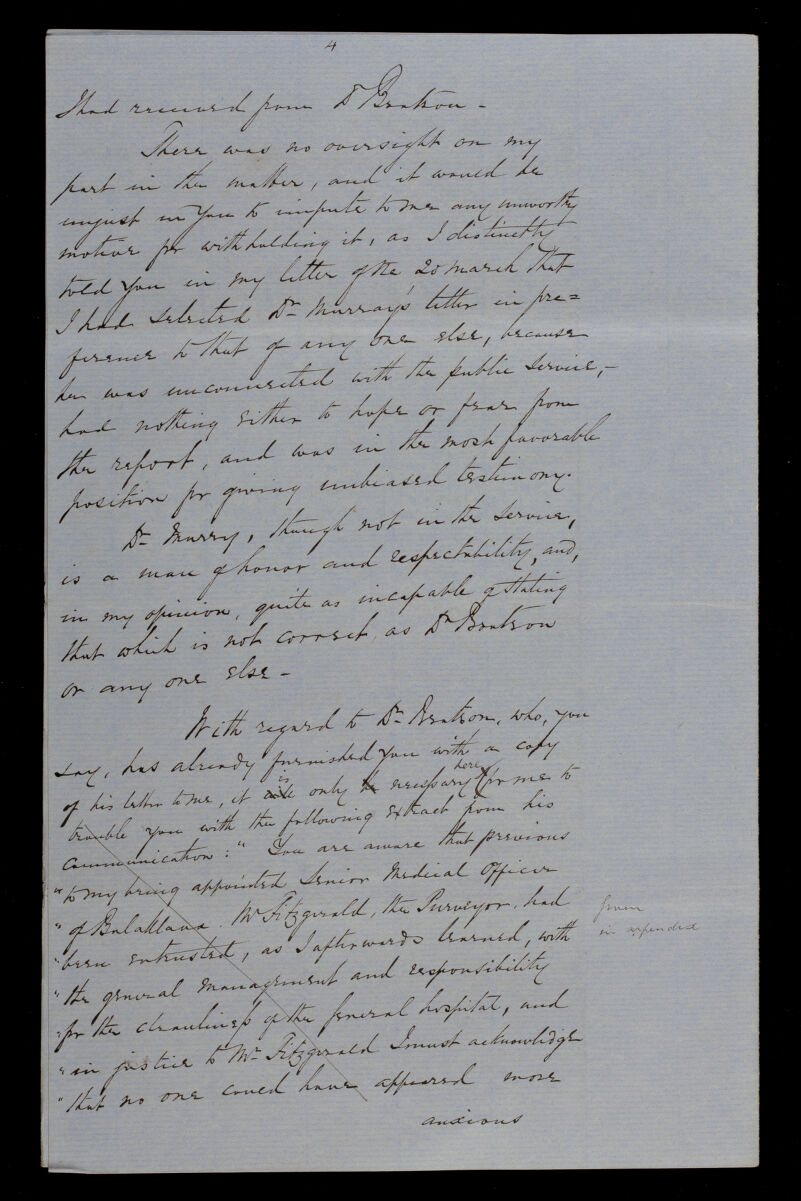 4
I had received from Dr Beatson -
There was no oversight on my
part in the matter, and it would be
unjust in You to impute to me any unworthy
motive for withholding it, as I distinctly
told You in my letter of the 20 March that
I had selected Dr Murray's letter in pre=
ference to that of any one else, because
he was unconnected with the public service, -
had nothing either to hope or fear from
the report, and was in the most favorable
position for giving unbiased testimony.
Dr Murry, though not in the service,
is a man of honor and respectability, and,
in my opinion, quite as incapable of stating
that which is not correct, as Dr Beatson
or any one else -
With regard to Dr Beatson, who, you
say, has already furnished you with a copy
of his letter to me, it is only necessary here for me to
trouble you with the following extract from his
communication: " You are aware that previous
" to my being appointed Senior Medical Officer
" of Balaklava. Mr Fitzgerald, the Purveyor, had
" been entrusted, as I afterwards learned, with
" the general management and responsibility
" for the cleanliness of the General hospital, and
" in justice to Mr Fitzgerald I must acknowledge
" that no one could have appeared more
anxious
given
in appendix